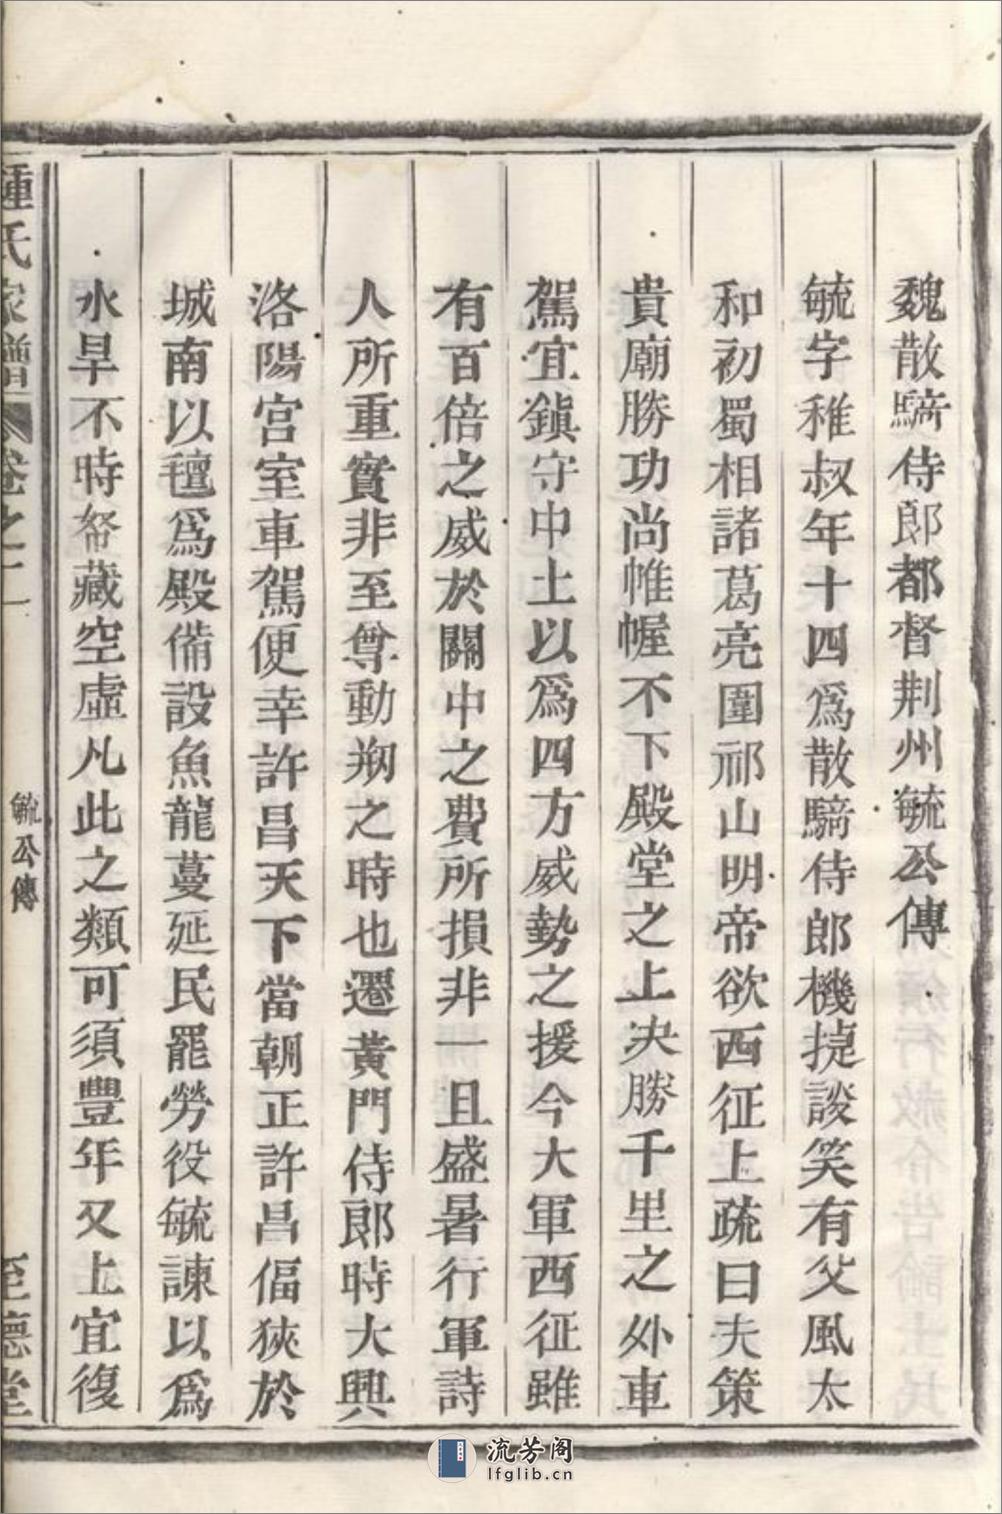 魏散騎侍郎都督荆州毓公傳
毓字稚叔年十四爲散騎侍郎機捷談笑有父風太
和初蜀相諸葛亮圍祁山明帝欲西征上疏曰夫策
貴廟勝功尚帷幄不下殿堂之上决勝千里之外車
駕宜鎮守中土以爲四方威勢之援今大軍西征雖
有百倍之威於關中之費所損非一且盛暑行軍詩
人所重實非至尊動刅之時也遷黃門侍郎時大興
洛陽宮室車駕便幸許昌天下當朝正許昌偪狹於
城南以氊爲殿備設魚龍蔓延民罷勞役毓諫以爲
水旱不時帑藏空虛凡此之類可須豐年又上宜復
鍾氏家譜 卷之二 毓公傳 至德堂
流芳阁
lfglib.cn